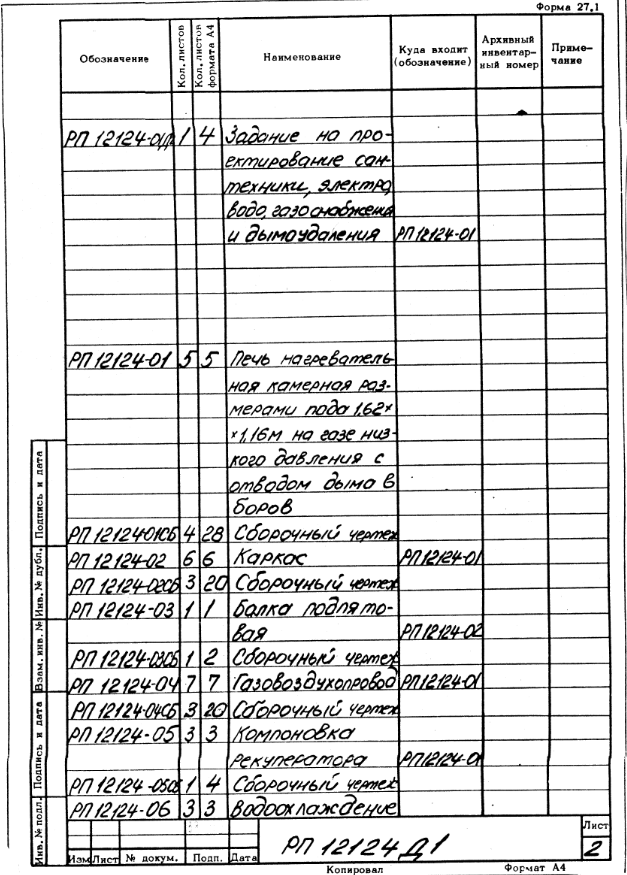 Форма 27.1
Обозначение Кол. листов Кол. листов формата А4 Наименование Куда входит (обозначение) Архивный инвентар- ный номер Приме- чание
РП 12124-01 1 4 Задание на про-
ектирование сан-
техники, электро,
водо, газоснабжения
и дымоудаления РП 12124-01
РП 12124-01 5 5 Печь нагреватель-
ная камерная раз-
мерами пода 1,62×
×1,16м на газе низ-
кого давления с
отводом дыма в
боров
РП 12124-01СБ 4 28 Сборочный чертеж
РП 12124-02 6 6 Каркас РП 12124-01
РП 12124-02СБ 3 20 Сборочный чертеж
РП 12124-03 1 1 Балка подпято-
вая РП 12124-02
РП 12124-03СБ 1 2 Сборочный чертеж
РП 12124-04 7 7 Газовоздухопровод РП 12124-01
РП 12124-04СБ 3 20 Сборочный чертеж
РП 12124-05 3 3 Компоновка
рекуператора РП 12124-01
РП 12124-05СБ 1 4 Сборочный чертеж
РП 12124-06 3 3 Водоохлаждение
Инв. № подл. Подпись и дата Взам. инв. № Инв. № дубл. Подпись и дата
Изм Лист № докум. Подп. Дата
РП 12124 Д1
Лист
2
Копировал Формат А4